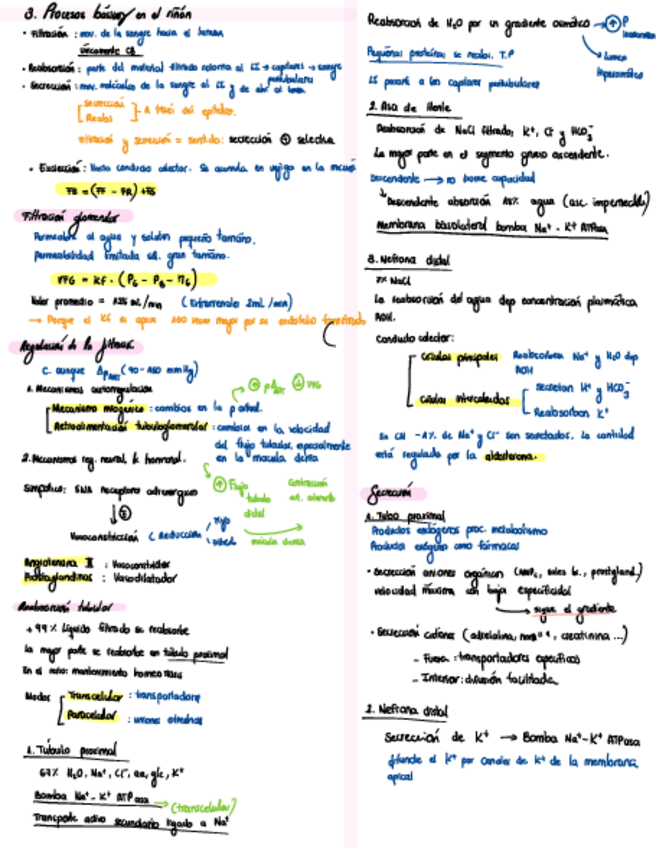 3. Procesos básicos en el riñón
• Filtración: mov. de la sangre hacia el lumen
únicamente CB
• Reabsorción: parte del material filtrado retorna al LI → capilares → sangre
peritubulares
• Secreción: mov. moléculas de la sangre al LI y de ahí al lumen
Secreción
Reabs
A través del epitelio.
Filtración y secreción = sentido: secreción ⊕ selectiva
• Excreción: Hasta conducto colector. Se acumula en vejiga en la micción
FE = (FF - FR) + FS
Filtración glomerular
Permeable al agua y solutos pequeño tamaño.
permeabilidad limitada gran tamaño.
VFG = Kf · (PG - PB - πG)
Valor promedio = 125 mL/min (Extrarrenales 2mL/min)
→ Porque el Kf es aprox 100 veces mayor por se endotelio fenestrado
Regulación de la filtración
C. aunque ΔPART (90-160 mmHg)
1. Mecanismos autorregulación
⊕ pART ⊕ VFG
Mecanismo miogénico: cambios en la p arterial.
Retroalimentación tubuloglomerular: cambios en la velocidad
del flujo tubular, especialmente
en la mácula densa
2. Mecanismos reg. neural, k hormonal.
↑ Flujo
túbulo
distal
Contracción
art. aferente
mácula densa
Simpático: SNA receptores adrenérgicos
Vasoconstricción (Reducción
Angiotensina II: Vasoconstrictor
Prostaglandinas: Vasodilatador
Reabsorción tubular
+99% líquido filtrado se reabsorbe
la mayor parte se reabsorbe en túbulo proximal
En el resto: mantenimiento homeostasis
Modos
Transcelular: transportadores
Paracelular: uniones estrechas
1. Túbulo proximal
67% H2O, Na+, Cl-, aa, glc, K+
Bomba Na+-K+ ATPasa → (transcelular)
Transporte activo secundario ligado a Na+
Reabsorción de H2O por un gradiente osmótico → ↑ P
Lumen
hiposmótico
Pequeñas proteínas se reabs. T.P
LI pasará a los capilares peritubulares
2. Asa de Henle
Reabsorción de NaCl filtrado, K+, Cl- y HCO3-
La mayor parte en el segmento grueso ascendente.
Descendente → no tiene capacidad
↳ Descendente absorción 15% agua (asc. impermeable)
Membrana basolateral bomba Na+-K+ ATPasa
3. Nefrona distal
7% NaCl
La reabsorción del agua dep concentración plasmática
ADH.
Conducto colector:
Células principales Reabsorben Na+ y H2O dep
ADH
Células intercaladas
secretan H+ y HCO3-
Reabsorben K+
En CN -4% de Na+ y Cl- son secretados. La cantidad
está regulada por la aldosterona.
Secreción
1. Tubo proximal
Productos endógenos proc. metabolismo
Productos exógeno como fármacos
• Secreción aniones orgánicos (AMPc, sales b., prostgland.)
velocidad máxima con baja especificidad
→ sigue el gradiente
• Secreción cationes (adrenalina, creatinina ...)
- Fuera: transportadores específicos
- Interior: difusión facilitada
2. Nefrona distal
Secreción de K+ → Bomba Na+-K+ ATPasa
difunde el K+ por canales de K+ de la membrana
apical